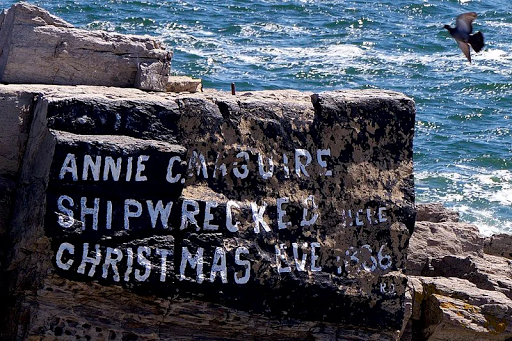 ANNIE C. MAGUIRE
SHIPWRECKED HERE
CHRISTMAS EVE 1886
R.D.